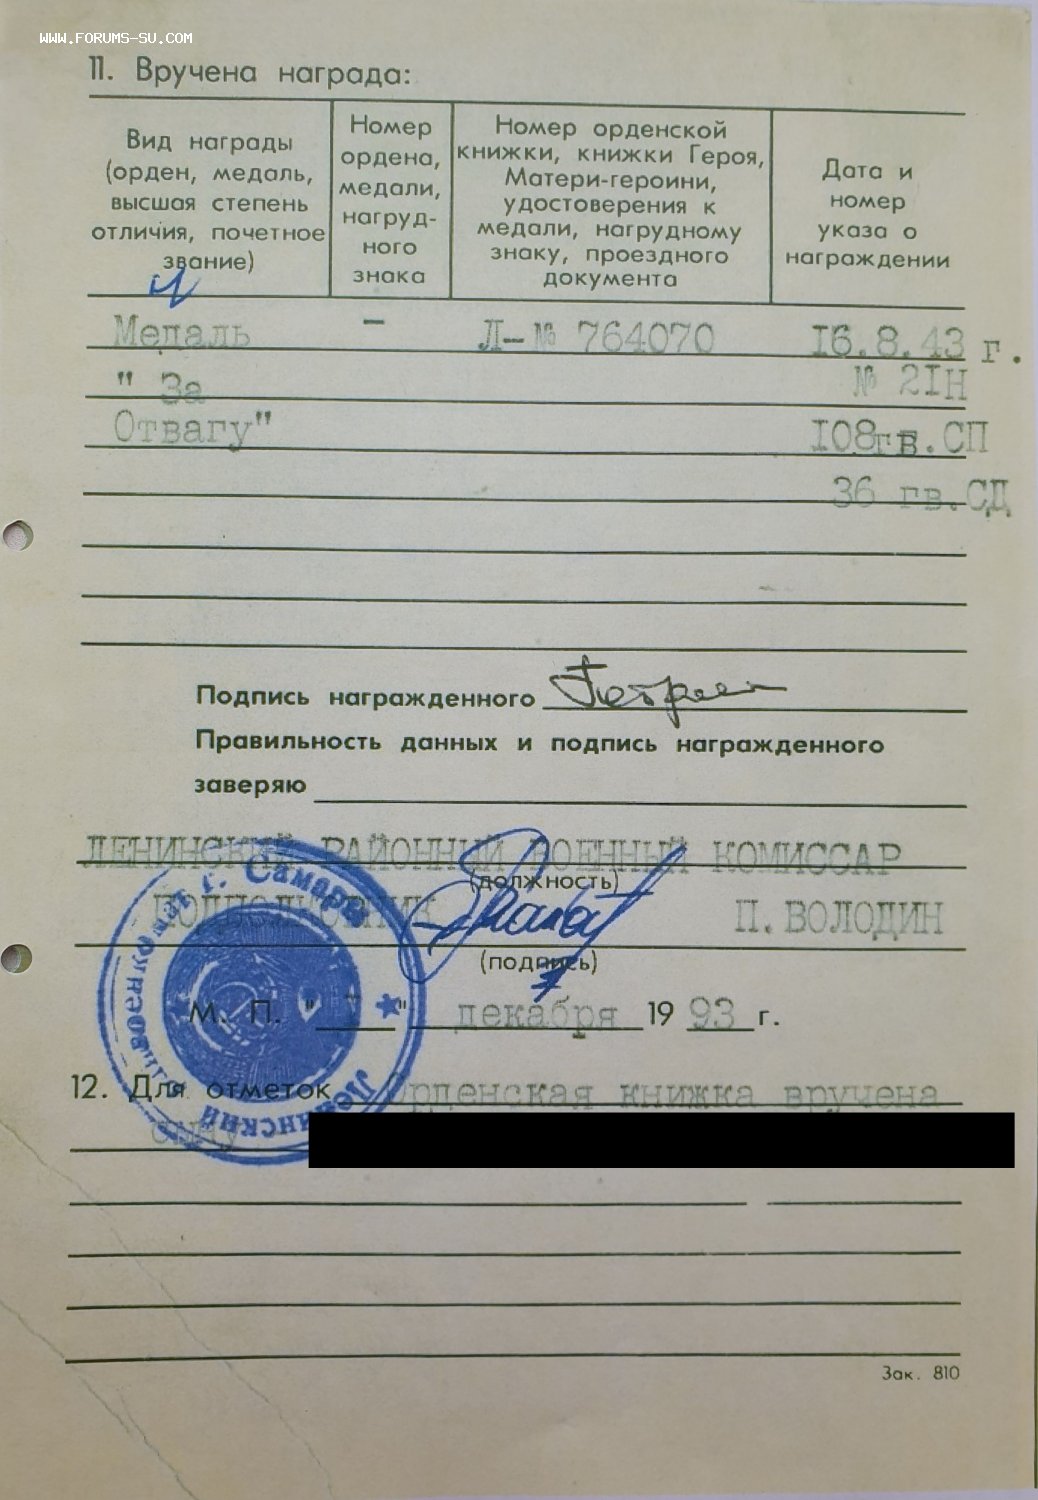 WWW.FORUMS-SU.COM
11. Вручена награда:
Вид награды
(орден, медаль,
высшая степень
отличия, почетное
звание)
Номер
ордена,
медали,
нагруд-
ного
знака
Номер орденской
книжки, книжки Героя,
Матери-героини,
удостоверения к
медали, нагрудному
знаку, проездного
документа
Дата и
номер
указа о
награждении
Медаль – Л-№ 764070 16.8.43 г.
" За № 21Н
Отвагу" 108гв.СП
36 гв.СД
Подпись награжденного
Правильность данных и подпись награжденного
заверяю
ЛЕНИНСКИЙ РАЙОННЫЙ ВОЕННЫЙ КОМИССАР
(должность)
ПОДПОЛКОВНИК П.ВОЛОДИН
(подпись)
М. П. " 7 " декабря 19 93 г.
12. Для отметок Орденская книжка вручена
сыну
г. Самара
Ленинский
Зак. 810